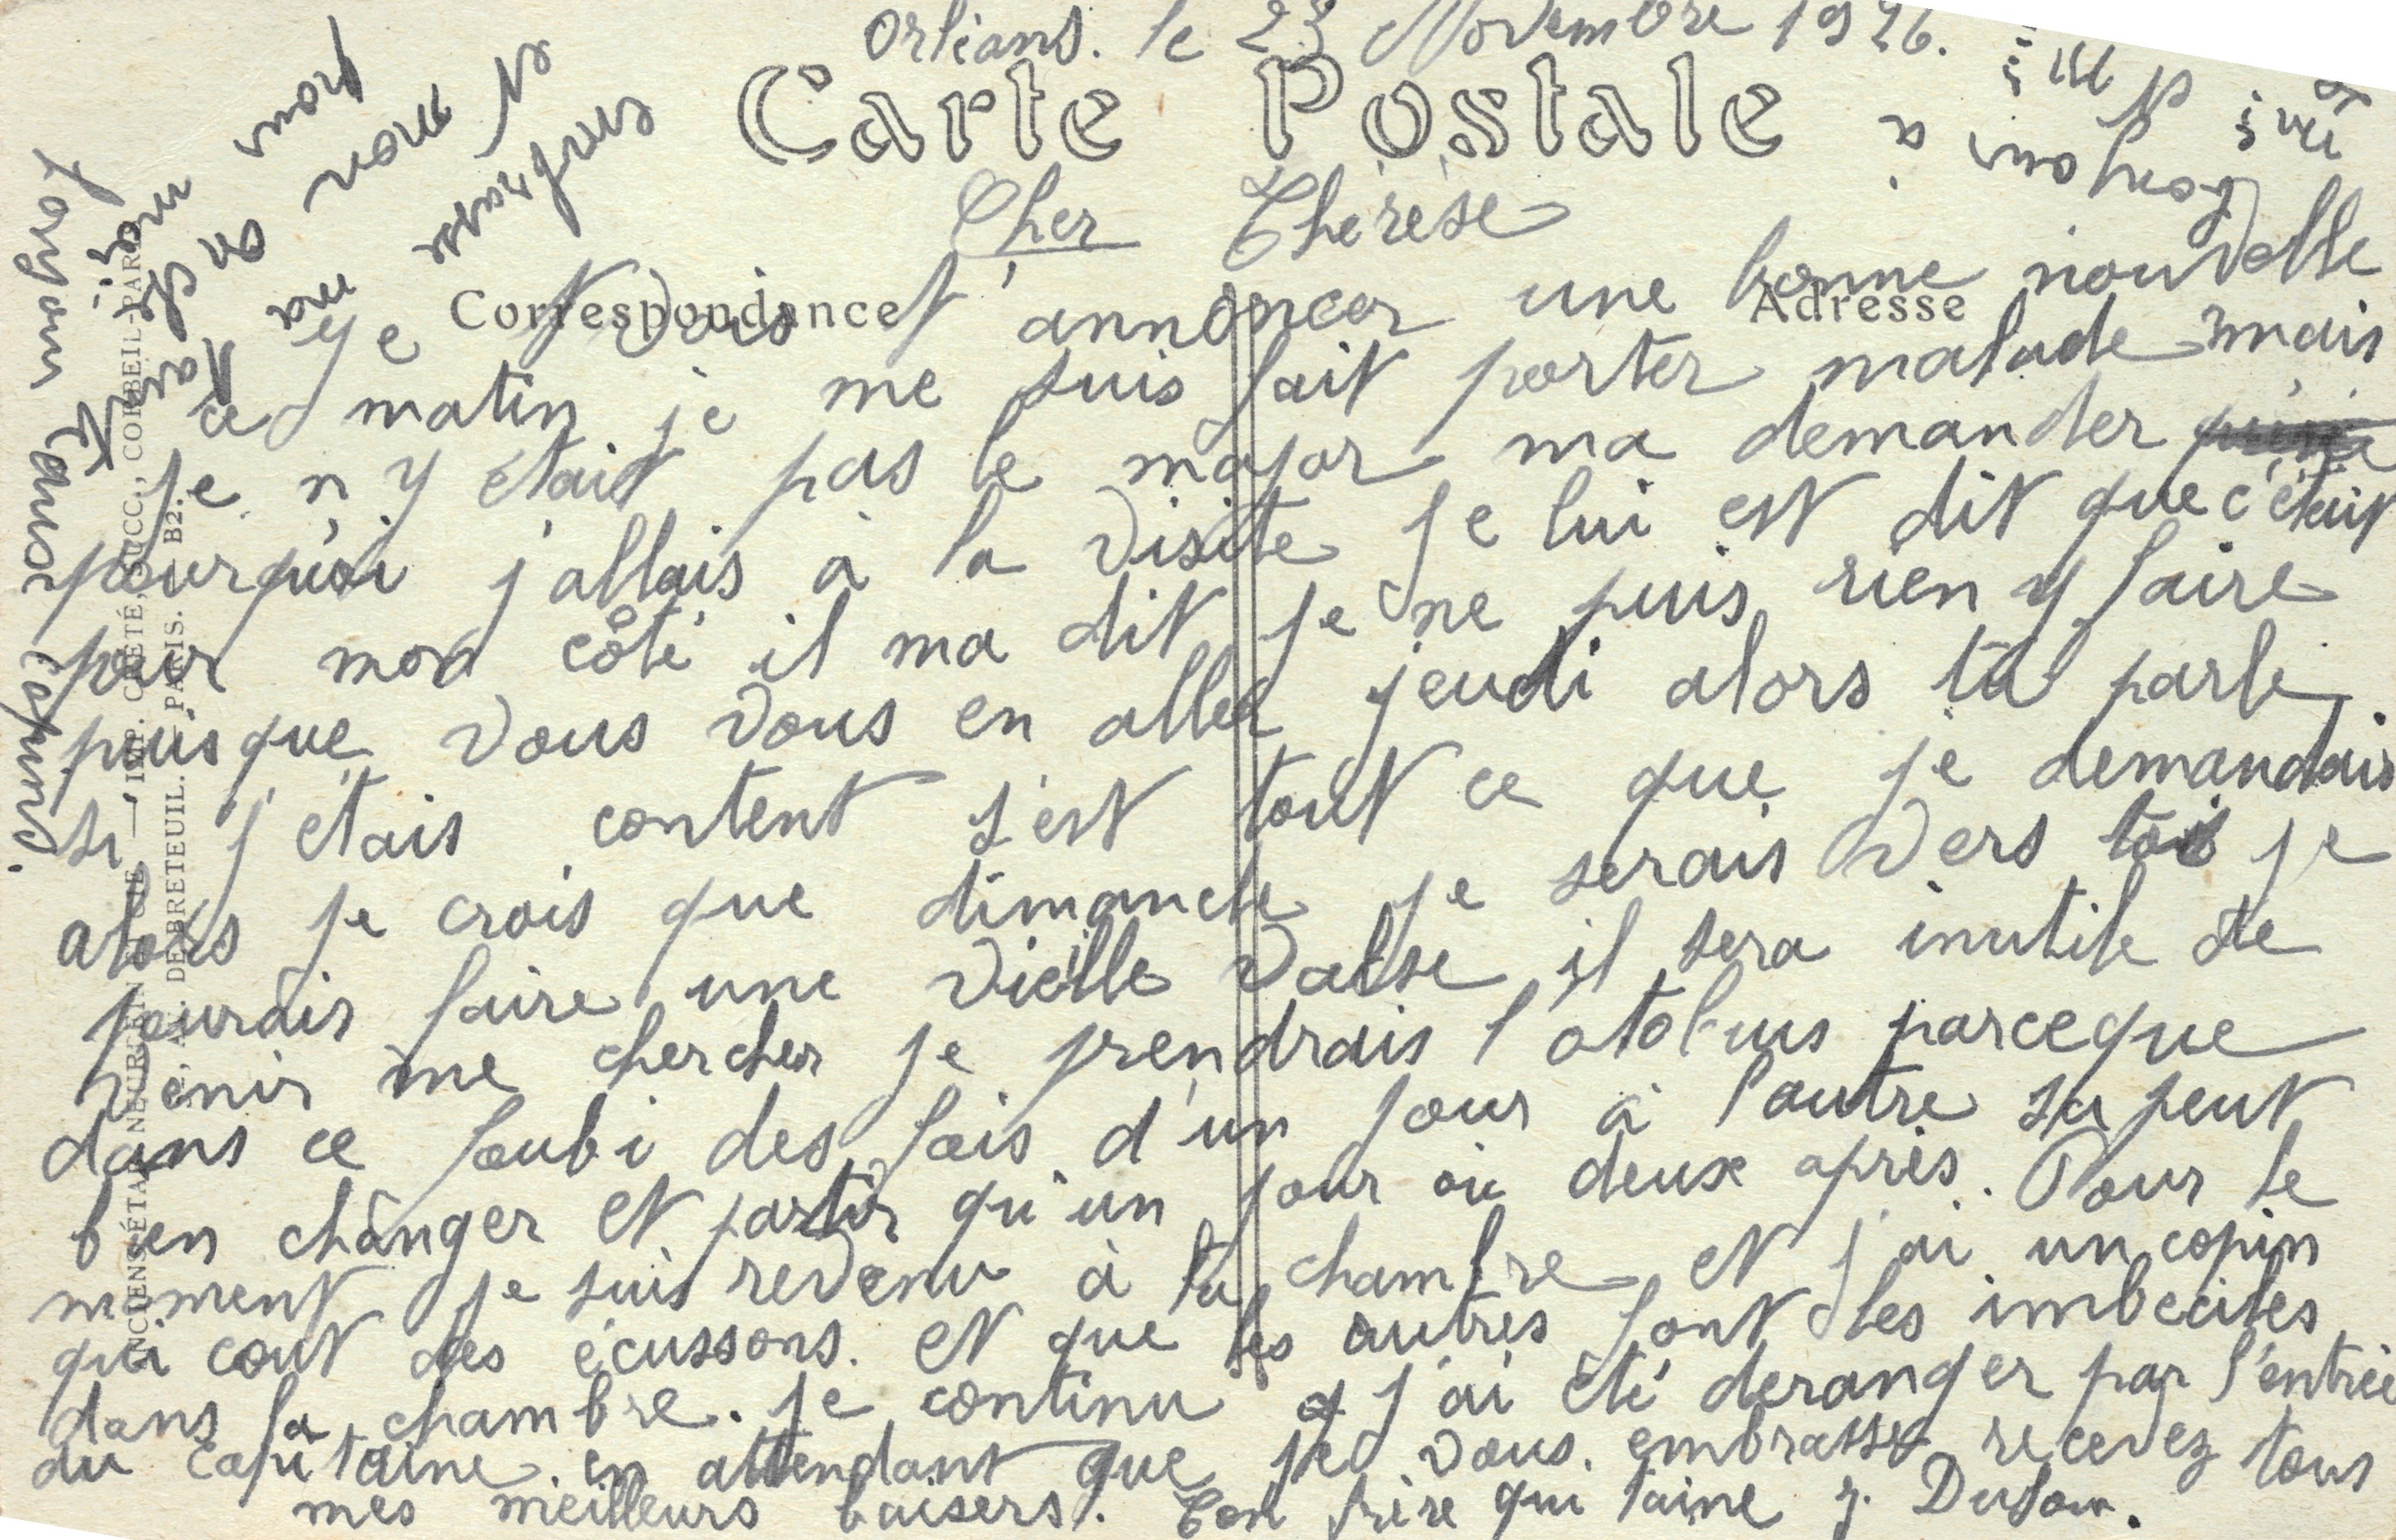 Orléans. le 23 Novembre 1926.
Carte Postale
Cher Thérèse
Correspondance
Adresse
Je vais t'annoncer une bonne nouvelle
ce matin je me suis fait porter malade mais
je n'y était pas le major ma demander
pourquoi j'allais à la visite je lui est dit que c'était
pour mon côté il ma dit je ne puis rien y faire
puisque vous vous en aller jeudi alors tu parle
si j'étais content s'est tout ce que je demandais
alors je crois que dimanche je serais vers toi je
pourais faire une vielle valse il sera inutile de
venir me chercher je prendrais l'otobus parceque
dans ce foubi des fois d'un jour à l'autre sa peut
bien changer et partir qu'un jour où deux après. Pour le
moment je suis revenu à la chambre et j'ai un copin
qui cout des écussons. et que les autres font les imbeciles
dans la chambre. je continu j'ai été deranger par l'entrée
du capitaine. en attendant que je vous embrasse recevez tous
mes meilleurs baisers. Ton frère qui t'aime
embrasse
ma
et
moi
pour